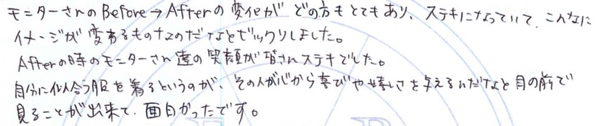 モニターさんのBefore→Afterの変化がどの方もとてもあり、ステキになっていて、こんなに
イメージが変わるものなのだなとビックリしました。
Afterの時のモニターさん達の笑顔が皆さんステキでした。
自分に似合う服を着るというのが、その人が心から喜びや嬉しさを与えるんだなと目の前で
見ることが出来て、面白かったです。